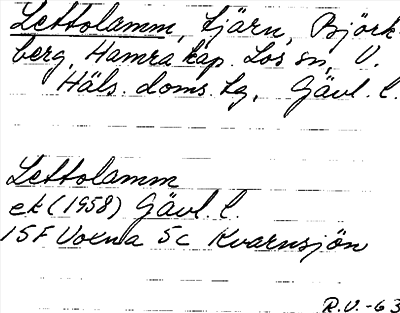 Lettolamm, tjärn, Björk-
berg, Hamra kap. Los sn, V.
Häls. doms. hg, Gävl. l.
Lettolamm
ek (1958) Gävl. l.
15F Voxna 5c Kvarnsjön
R.V.-63